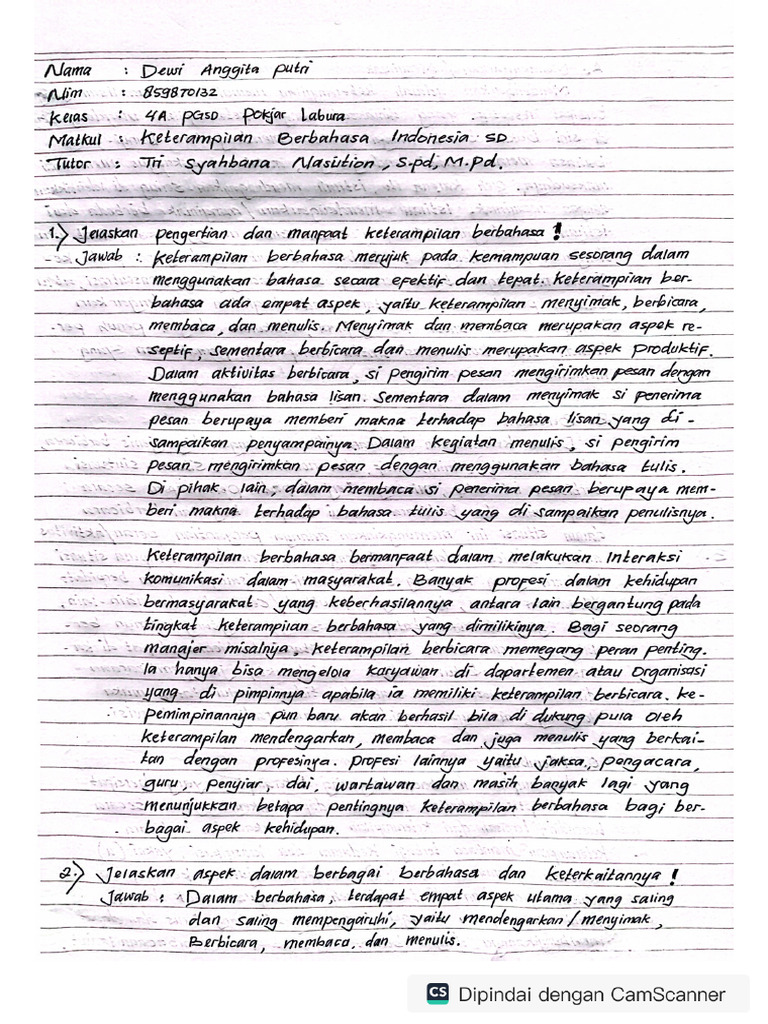 Nama : Dewi Anggita Putri
Nim : 859870132
Kelas : 4A PGSD Pokjar Labura
Matkul : Keterampilan Berbahasa Indonesia SD
Tutor : Tri Syahbana Nasution, S.pd, M.Pd.
1.) Jelaskan pengertian dan manfaat keterampilan berbahasa !
Jawab : Keterampilan berbahasa merujuk pada kemampuan sesorang dalam
menggunakan bahasa secara efektif dan tepat. Keterampilan ber-
bahasa ada empat aspek, yaitu keterampilan menyimak, berbicara,
membaca, dan menulis. Menyimak dan membaca merupakan aspek re-
septif, sementara berbicara dan menulis merupakan aspek Produktif.
Dalam aktivitas berbicara, si pengirim pesan mengirimkan pesan dengan
menggunakan bahasa lisan. Sementara dalam menyimak si penerima
pesan berupaya memberi makna terhadap bahasa lisan yang di -
sampaikan penyampainya. Dalam kegiatan menulis, si pengirim
pesan mengirimkan pesan dengan menggunakan bahasa tulis.
Di pihak lain, dalam membaca si penerima pesan berupaya mem-
beri makna terhadap bahasa tulis yang di sampaikan penulisnya.
Keterampilan berbahasa bermanfaat dalam melakukan Interaksi
komunikasi dalam masyarakat. Banyak profesi dalam kehidupan
bermasyarakat yang keberhasilannya antara lain bergantung pada
tingkat keterampilan berbahasa yang dimilikinya. Bagi seorang
manajer misalnya, keterampilan berbicara memegang peran penting.
Ia hanya bisa mengelola karyawan di dapartemen atau Organisasi
yang di pimpinnya apabila ia memiliki keterampilan berbicara. ke-
pemimpinannya pun baru akan berhasil bila di dukung pula oleh
keterampilan mendengarkan, membaca dan juga menulis yang berkai-
tan dengan profesinya. Profesi lainnya yaitu jaksa, pengacara,
guru, penyiar, dai, wartawan dan masih banyak lagi yang
menunjukkan betapa pentingnya keterampilan berbahasa bagi ber-
bagai aspek kehidupan.
2.) Jelaskan aspek dalam berbagai berbahasa dan keterkaitannya !
Jawab : Dalam berbahasa, terdapat empat aspek utama yang saling
dan saling mempengaruhi, yaitu mendengarkan / menyimak,
Berbicara, membaca, dan menulis.
CS Dipindai dengan CamScanner